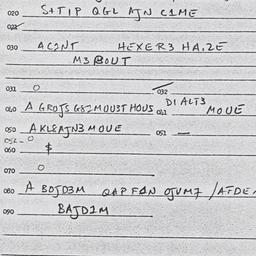 020 S+TIP QGL AJN C1ME
022
030 AC2NT HEXER3 HA.ZE
M3 BOUT
031 O 032
040 A GROJS G8IMOU3T HOUS 041 DIALT3 MOUE
050 AKLEAJN3 MOUE 051 —
052 - O
060 $
070 O
080 A BOJD3M QAPFAN OJVM7 /ATDE
090 BAJD1M